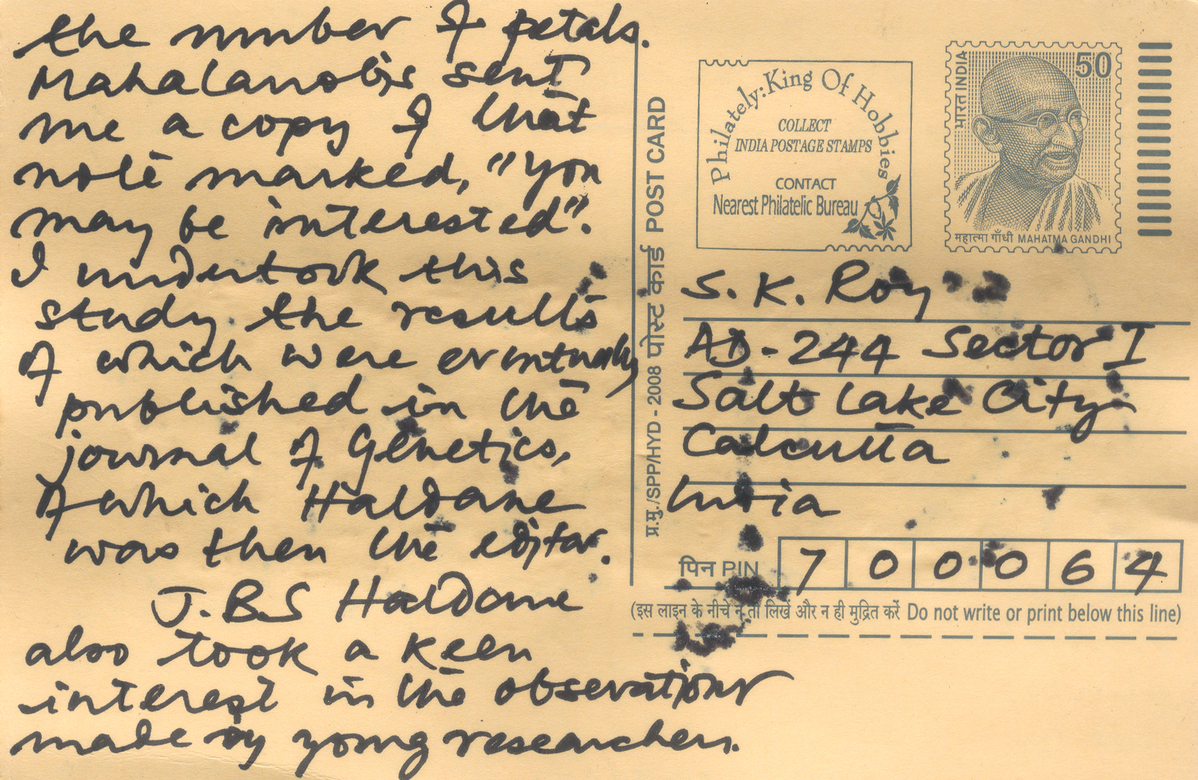 the number of petals.
Mahalanobis sent
me a copy of that
note marked, "you
may be interested".
I undertook this
study the results
of which were eventually
published in the
journal of Genetics,
of which Haldane
was then the editor.
J.B.S Haldane
also took a keen
interest in the observations
made by young researchers.
प्र.मु./SPP/HYD - 2008 पोस्ट कार्ड POST CARD
Philately: King Of Hobbies
COLLECT
INDIA POSTAGE STAMPS
CONTACT
Nearest Philatelic Bureau
भारत INDIA
50
महात्मा गाँधी MAHATMA GANDHI
S. K. Roy
AD-244 Sector I
Salt Lake City
Calcutta
India
पिन PIN 700064
(इस लाइन के नीचे न तो लिखें और न ही मुद्रित करें Do not write or print below this line)